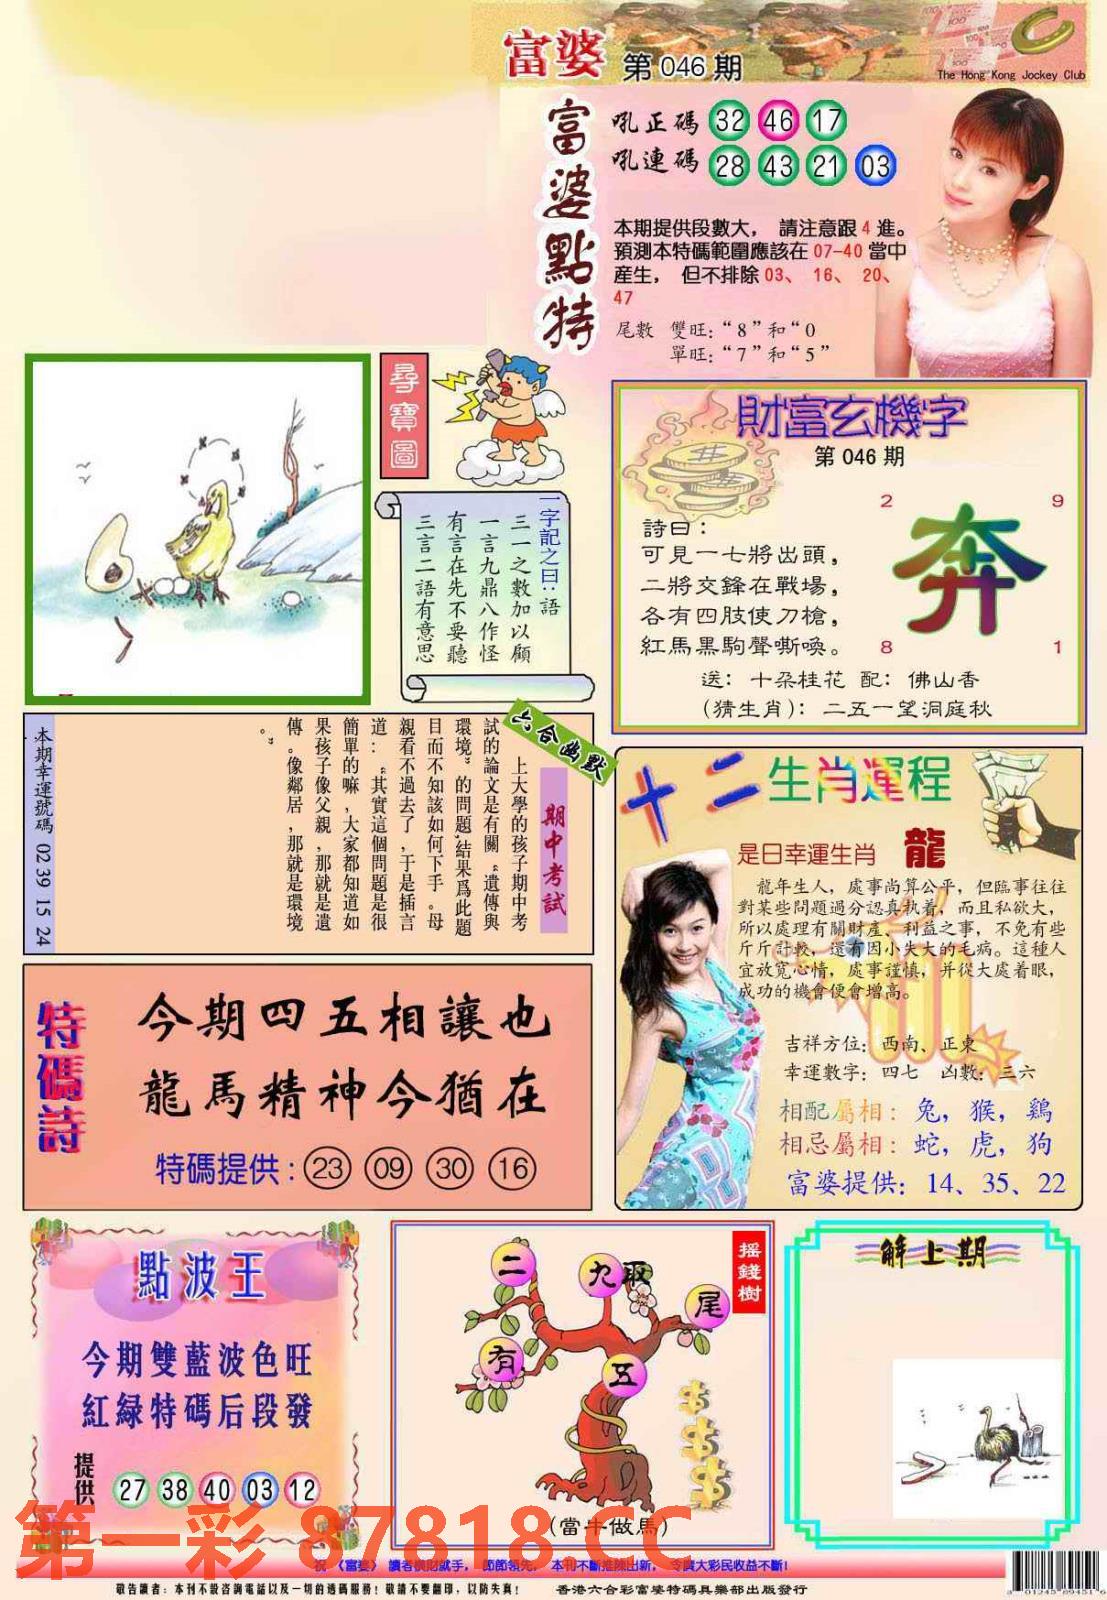 富婆 第 046 期
The Hong Kong Jockey Club
富婆點特
吼正碼 32 46 17
吼連碼 28 43 21 03
本期提供段數大， 請注意跟 4 進。
預測本特碼範圍應該在 07-40 當中
產生， 但不排除 03、 16、 20、
47
尾數 雙旺：“8”和“0
單旺：“7”和“5”
尋寶圖
一字記之曰：語
三一之數加以顧
一言九鼎八作怪
有言在先不要聽
三言二語有意思
財富玄機字
第 046 期
2 9
奔
8 1
詩曰：
可見一七將出頭，
二將交鋒在戰場，
各有四肢使刀槍，
紅馬黑駒聲嘶喚。
送：十朶桂花 配：佛山香
(猜生肖)：二五一望洞庭秋
六合幽默
期中考試
上大學的孩子期中考
試的論文是有關“遺傳與
環境”的問題,結果爲此題
目而不知該如何下手。母
親看不過去了,于是插言
道：“其實這個問題是很
簡單的嘛,大家都知道如
果孩子像父親,那就是遺
傳。像鄰居,那就是環境
。”
本期幸運號碼 02 39 15 24
十二生肖運程
是日幸運生肖 龍
龍年生人，處事尚算公平，但臨事往往
對某些問題過分認真執着，而且私欲大，
所以處理有關財産、利益之事，不免有些
斤斤計較，還有因小失大的毛病。這種人
宜放寬心情，處事謹慎，并從大處着眼，
成功的機會便會增高。
吉祥方位：西南、正東
幸運數字：四七 凶數：三六
相配屬相：兔，猴，鷄
相忌屬相：蛇，虎，狗
富婆提供：14、35、22
特碼詩
今期四五相讓也
龍馬精神今猶在
特碼提供：23 09 30 16
點波王
今期雙藍波色旺
紅綠特碼后段發
提供 27 38 40 03 12
搖錢樹
二 九 取 尾
有 五
(當牛做馬)
解上期
第一彩 87818.CC
祝《富婆》讀者橫財就手，節節領先，本刊不斷推陳出新，令廣大彩民收益不斷!
敬告讀者：本刊不設咨詢電話以及一切的透碼服務! 敬請不要翻印，以防失真! 香港六合彩富婆特碼具樂部出版發行